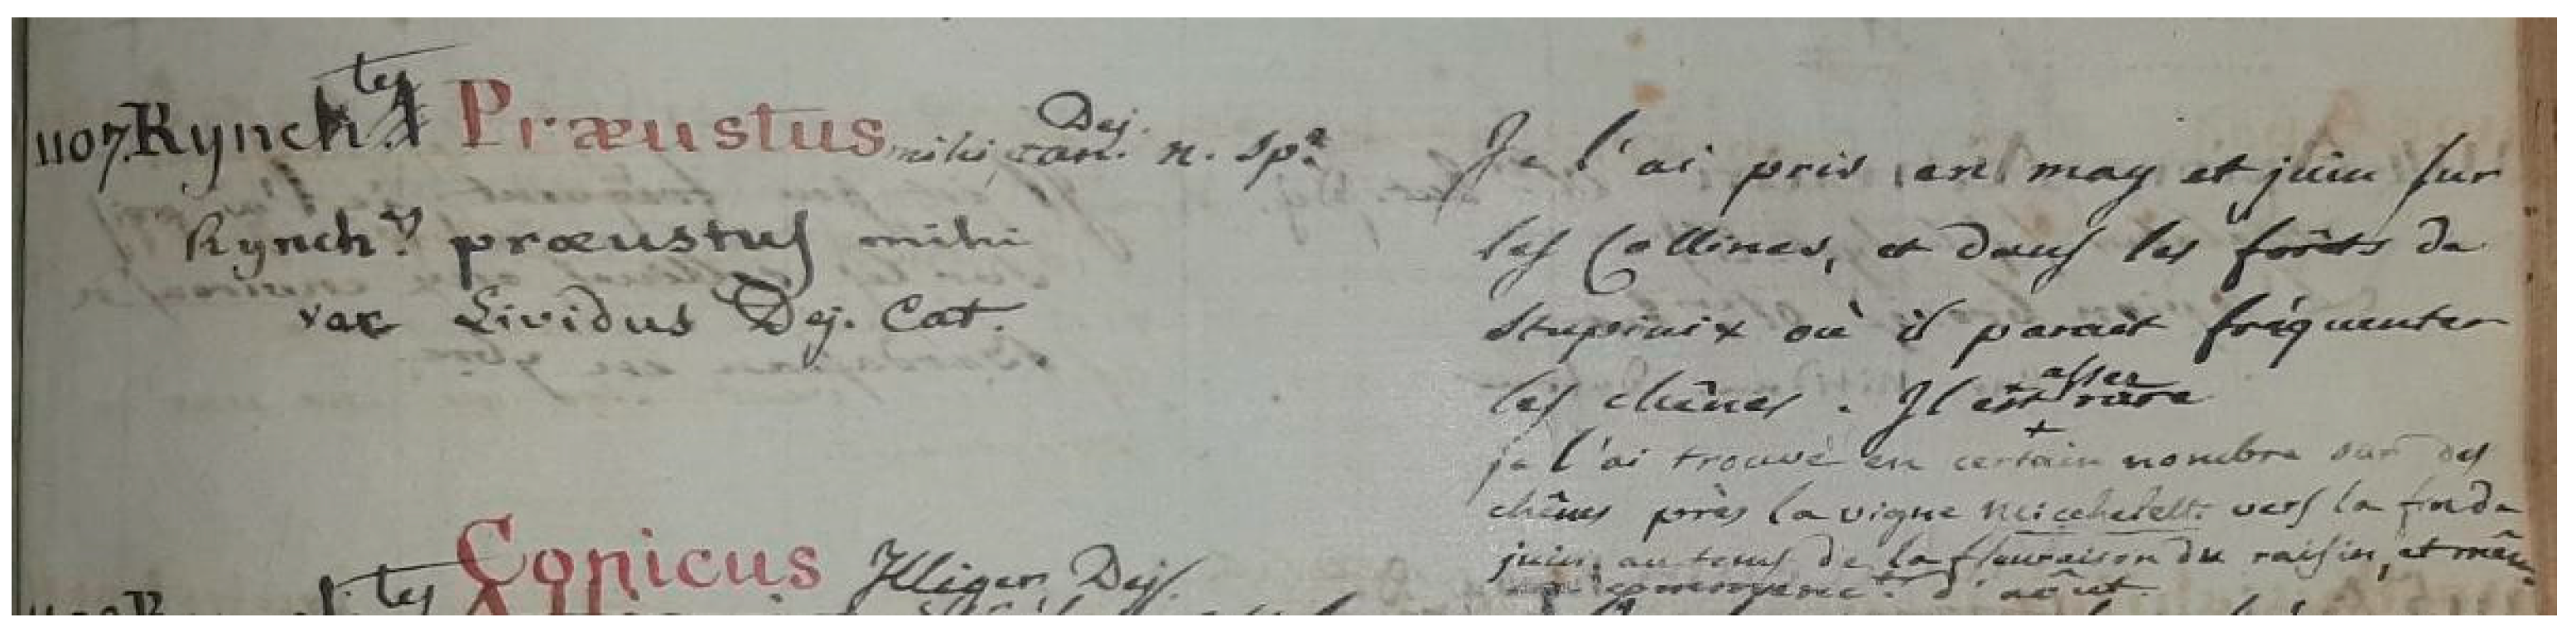 1107. Rynch.tes Præustus mihi, Dej. Cat. n. Sp.a
Rynch.s præustus mihi
var Lividus Dej. Cat.
Je l'ai pris en may et juin sur
les Collines, et dans les forêts de
Stupinix où il parait fréquenter
les chênes. Il est asses rare
+
je l'ai trouvé en certain nombre sur des
chênes près la vigne vers la fin de
juin, au tems de la fleuraison du raisin, et mêm
commencemt. d'aôut.
Conicus Illiger, Dej.
tes